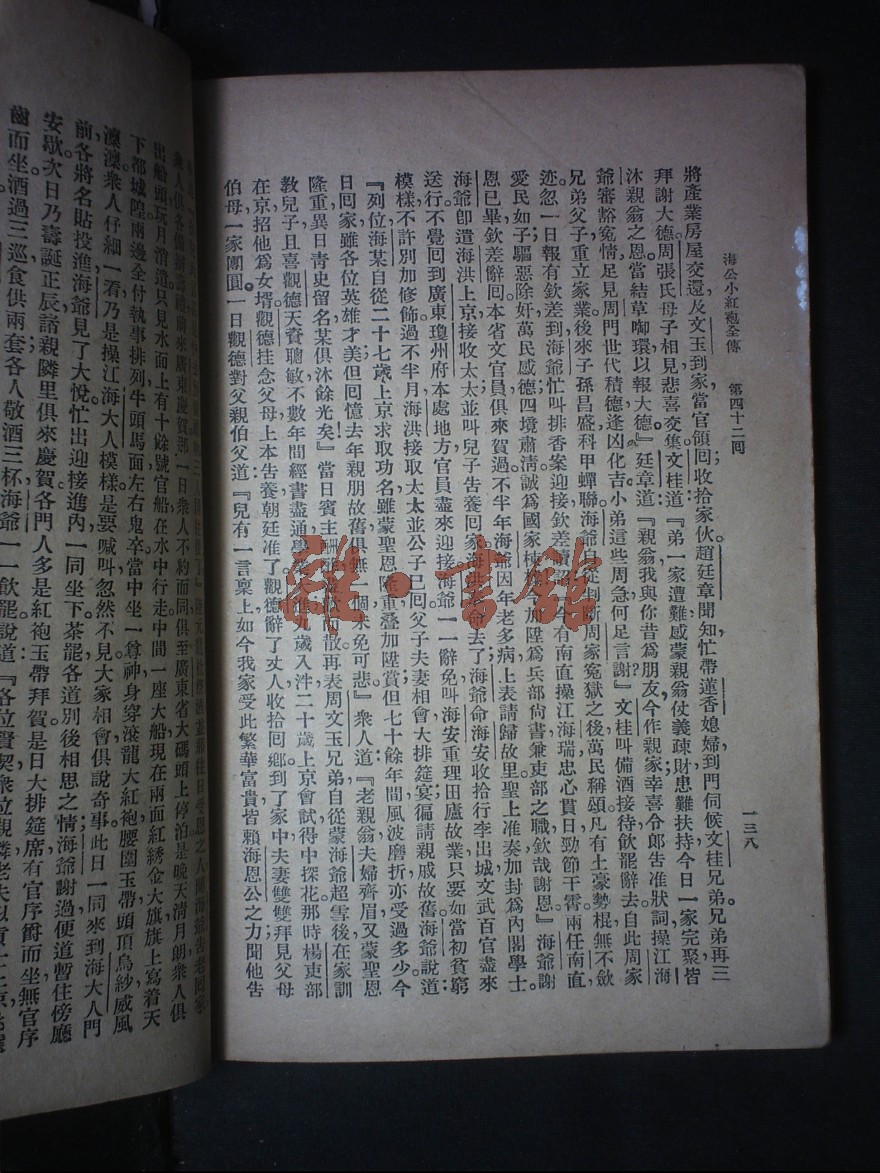 海公小紅袍全傳　第四十二回
一三八
將產業房屋交還及文玉到家當官領回收拾家伙趙廷章聞知忙帶蓮香媳婦到門伺候文桂兄弟兄弟再三
拜謝大德。周張氏母子相見悲喜交集文桂道：『弟一家遭難感蒙親翁仗義疎財患難扶持今日一家完聚皆
沐親翁之恩當結草啣環以報大德。』廷章道：『親翁我與你昔爲朋友今作親家幸喜令郎告准狀詞操江海
爺審豁冤情足見周門世代積德逢凶化吉小弟這些周急何足言謝？』文桂叫備酒接待飲罷辭去自此周家
兄弟父子重立家業後來子孫昌盛科甲蟬聯海爺自從判斷周家冤獄之後萬民稱頌凡有土豪勢棍無不斂
迹忽一日報有欽差到海爺忙叫排香案迎接欽差讀詔有南直操江海瑞忠心貫日勁節干霄兩任南直
愛民如子驅惡除奸萬民感德四境肅清誠爲國家棟加陞爲兵部尙書兼吏部之職欽哉謝恩』海爺謝
恩已畢欽差辭回本省文官員俱來賀過不半年海爺因年老多病上表請歸故里聖上准奏加封爲內閣學士
海爺卽遣海洪上京接收太太並叫兒子告養回家海洪命去了海爺命海安收拾行李出城文武百官盡來
送行不覺回到廣東瓊州府本處地方官員盡來迎接海爺一一辭免叫海安重理田廬故業只要如當初貧窮
模樣不許別加修飾過不半月海洪接取太太並公子已回父子夫妻相會大排筵宴徧請親戚故舊海爺說道：
『列位海某自從二十七歲上京求取功名雖蒙聖恩隆重疊加陞賞但七十餘年間風波磨折亦受過多少今
日回家雖各位英雄才美但回憶去年親朋故舊俱無一個未免可悲』衆人道『老親翁夫婦齊眉又蒙聖恩
隆重異日青史留名某俱沐餘光矣！』當日賓主酬飲而散再表周文玉兄弟自從蒙海爺超雪後在家訓
敎兒子且喜觀德天資聰敏不數年間經書盡通九歲入泮二十歲上京會試得中探花那時楊吏部
在京招他爲女壻觀德挂念父母上本告養朝廷准了觀德辭了丈人收拾回鄉到了家中夫妻雙雙拜見父母
伯母一家團圓一日觀德對父親伯父道：『兒有一言稟上如今我家受此繁華富貴皆賴海恩公之力聞他告
衆人俱各備前來廣東慶賀那一日衆人不約而同俱至廣東省大碼頭上停泊是晚天淸月朗衆人俱
出船頭玩月消遣只見水面上有十餘號官船在水中行走中間一座大船現在兩面紅綉金大旗旗上寫着天
下都城隍兩邊全付執事排列牛頭馬面左右鬼卒當中坐一尊神身穿滾龍大紅袍腰圍玉帶頭頂烏紗威風
凜凜衆人仔細一看乃是操江海大人模樣是要喊叫忽然不見大家相會俱說奇事此日一同來到海大人門
前各將名貼投進海爺見了大悅忙出迎接進內一同坐下茶罷各道別後相思之情海爺謝過便道暫住傍廳
安歇次日乃壽誕正辰諸親隣里俱來慶賀各門人多是紅袍玉帶拜賀是日大排筵席有官序爵而坐無官序
齒而坐酒過三巡食供兩套各人敬酒三杯海爺一一飲罷說道『各位賢契衆位親隣老夫
雜·書館